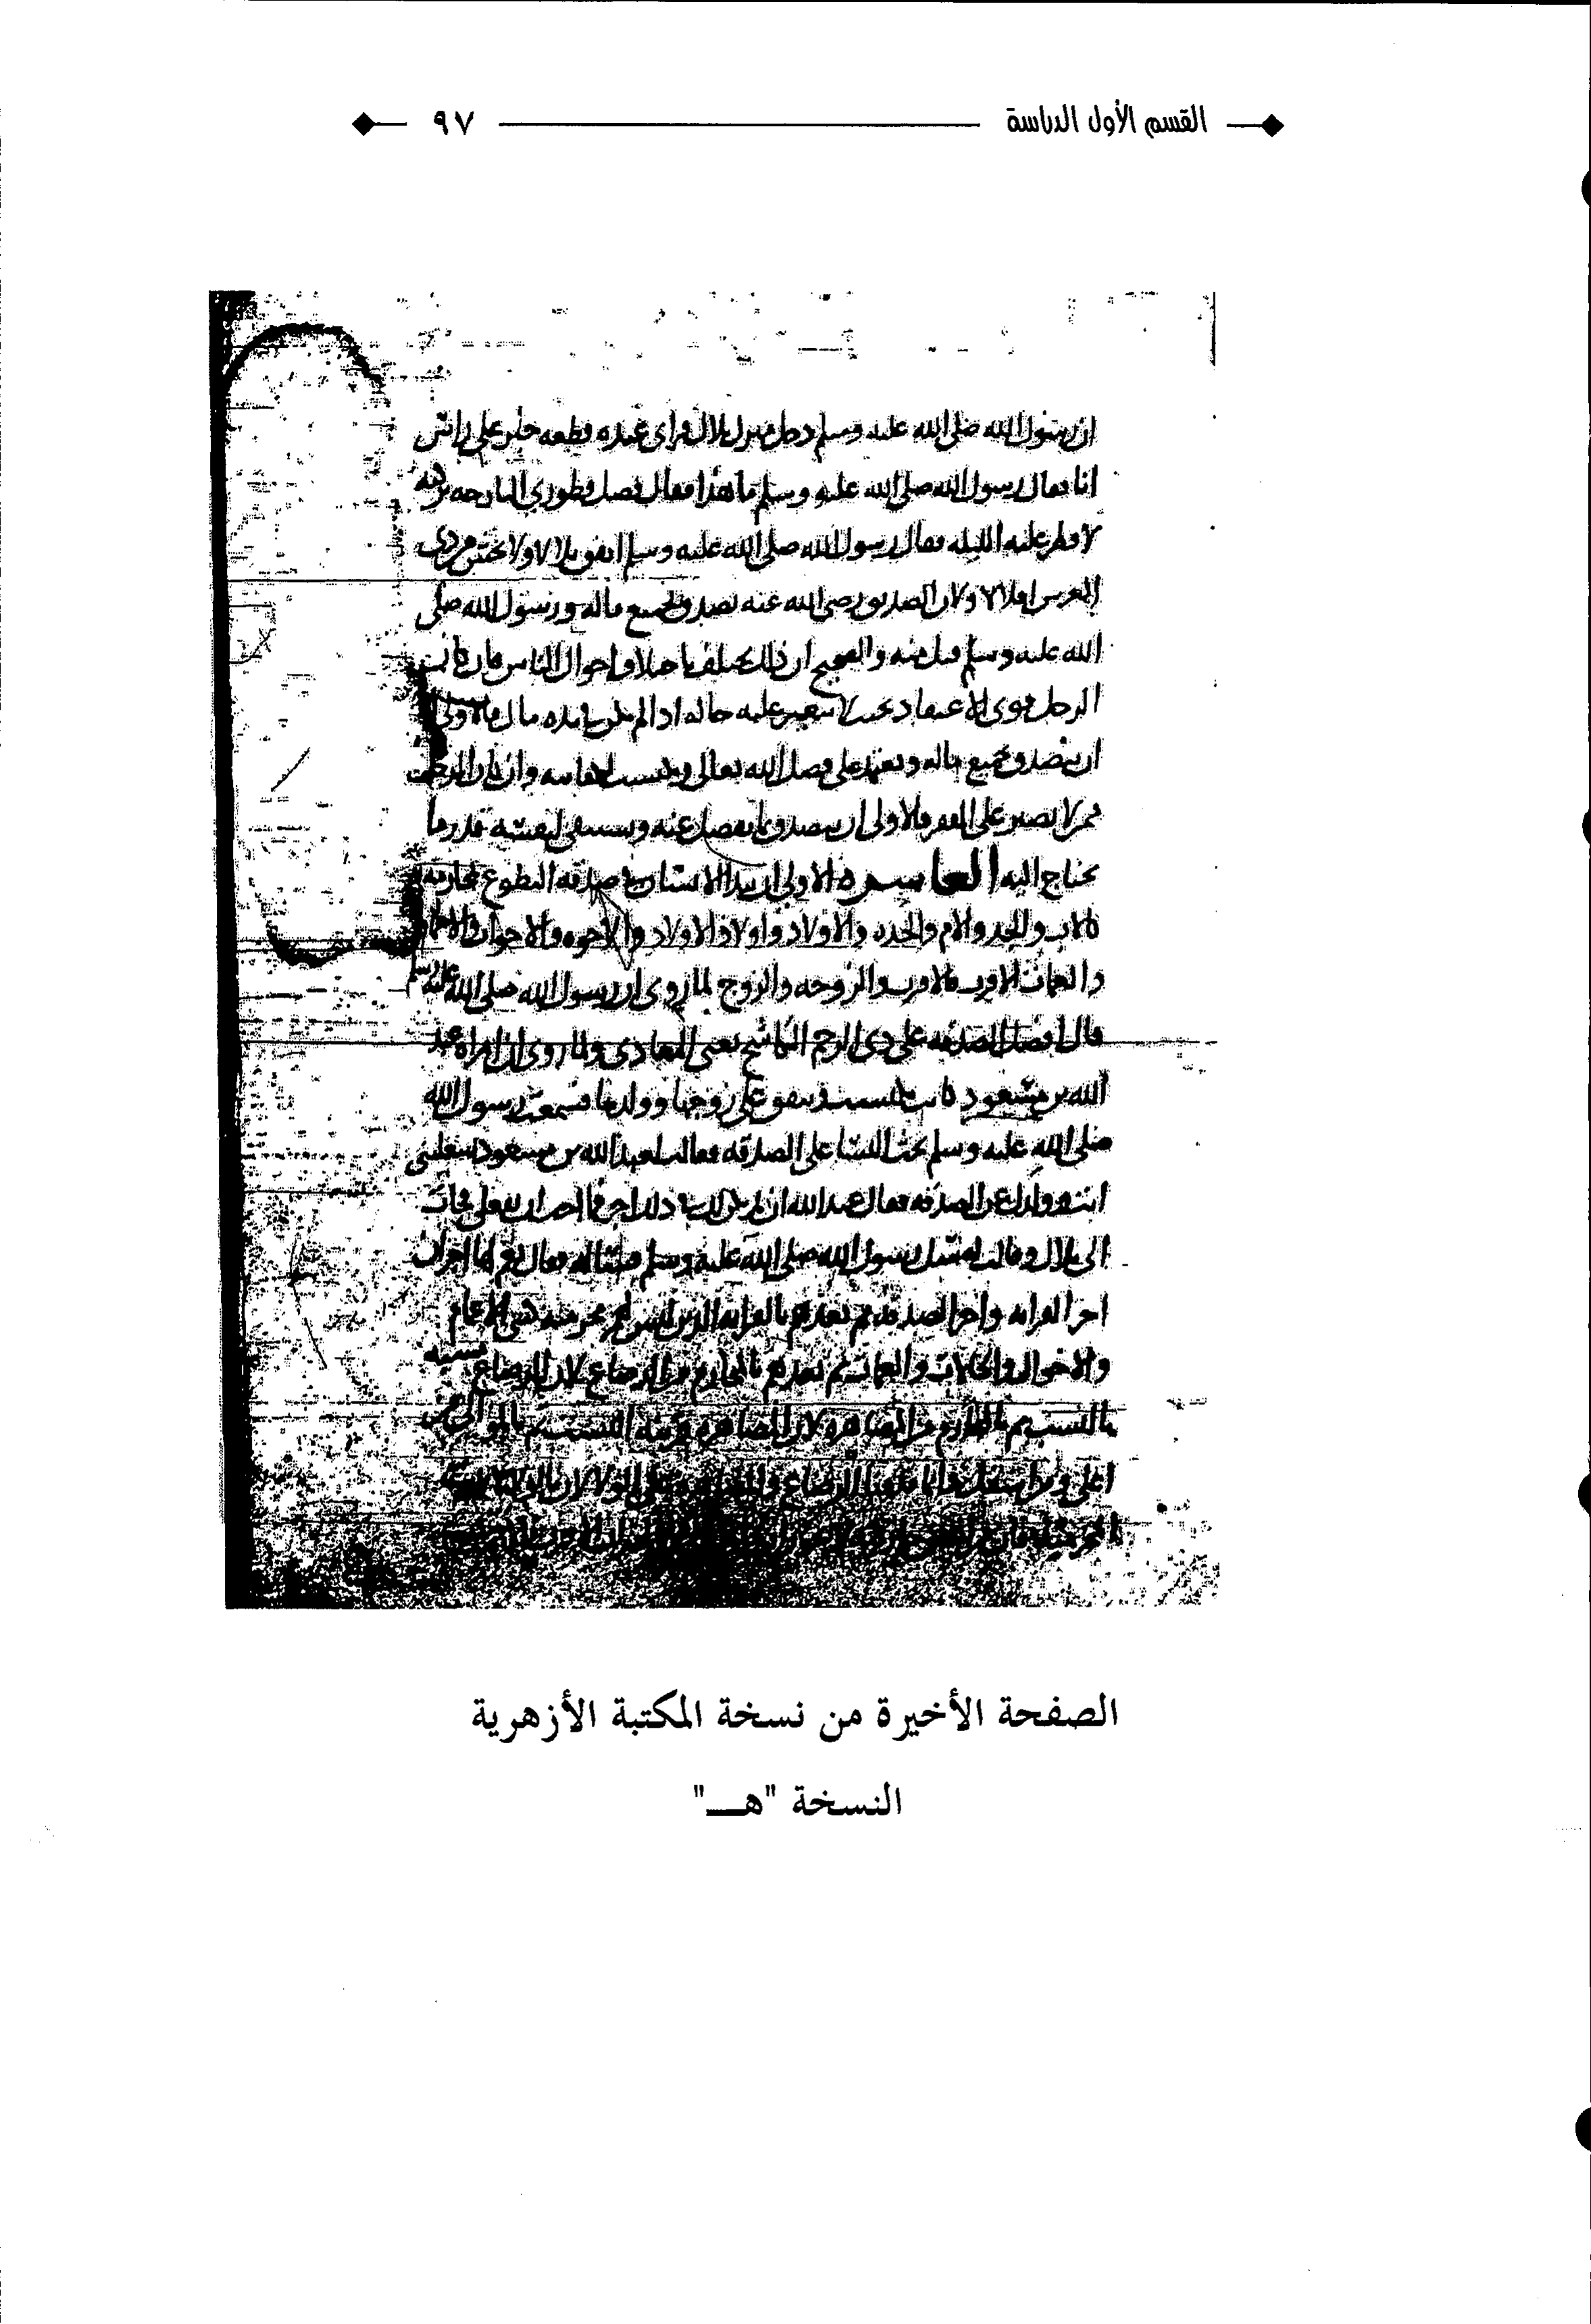 القسم الأول الدراسة ٩٧
ان رسول الله صلى الله عليه وسلم دخل منزل بلال فراى عنده قطعه خبز على راس
انا فقال رسول الله صلى الله عليه وسلم ما هذا فقال فضل فطوري البارحه تركته
لافطر عليه الليله فقال رسول الله صلى الله عليه وسلم انفق بلالا ولا تخش من ذي
العرش اقلالا ولان الصديق رضي الله عنه تصدق بجميع ماله ورسول الله صلى
الله عليه وسلم قبل منه والصحيح ان ذلك يختلف باختلاف احوال الناس فان كانت
الرجل قوي الاعتقاد بحيث لا يتغير عليه حاله اذا لم يكن في يده مال فالاولى
ان يتصدق بجميع ماله ويعتمد على فضل الله تعالى وان كان الرجل
ممن لا يصبر على الفقر فالاولى ان يتصدق بما يفضل عنه ويستبقي لنفسه قدر ما
يحتاج اليه العاشره الاولى ان يبدا الانسان في صدقه التطوع بمحارمه
كالاب والجد والام والجده والاولاد واولاد الاولاد والاخوه والاخوات والاعمام
والعمات الاقرب فالاقرب والزوجه والزوج لما روي ان رسول الله صلى الله عليه وسلم
قال افضل الصدقه على ذي الرحم الكاشح يعني المعادي ولما روي ان امراه عبد
الله بن مسعود كانت تنفق على زوجها وولدها فسمعت رسول الله
صلى الله عليه وسلم يحث النسا على الصدقه فقالت لعبد الله بن مسعود شغلتني
انت وولدك عن الصدقه فقال عبد الله ان لم يكن لك في ذلك اجر فما احب ان تفعلي فجات
الى بلال وقالت له سل رسول الله صلى الله عليه وسلم فساله فقال نعم لها اجران
اجر القرابه واجر الصدقه ثم بعدهم بالقرابه الذين ليس لهم محرميه كبني الاعمام
والاخوال والخالات والعمات ثم بعدهم بالمحارم من الرضاع لان الرضاع
بالنسب ثم بالمحارم من المصاهره لان المصاهره النسب ثم بالموالي من
اعلى
الصفحة الأخيرة من نسخة المكتبة الأزهرية
النسخة "هـ"